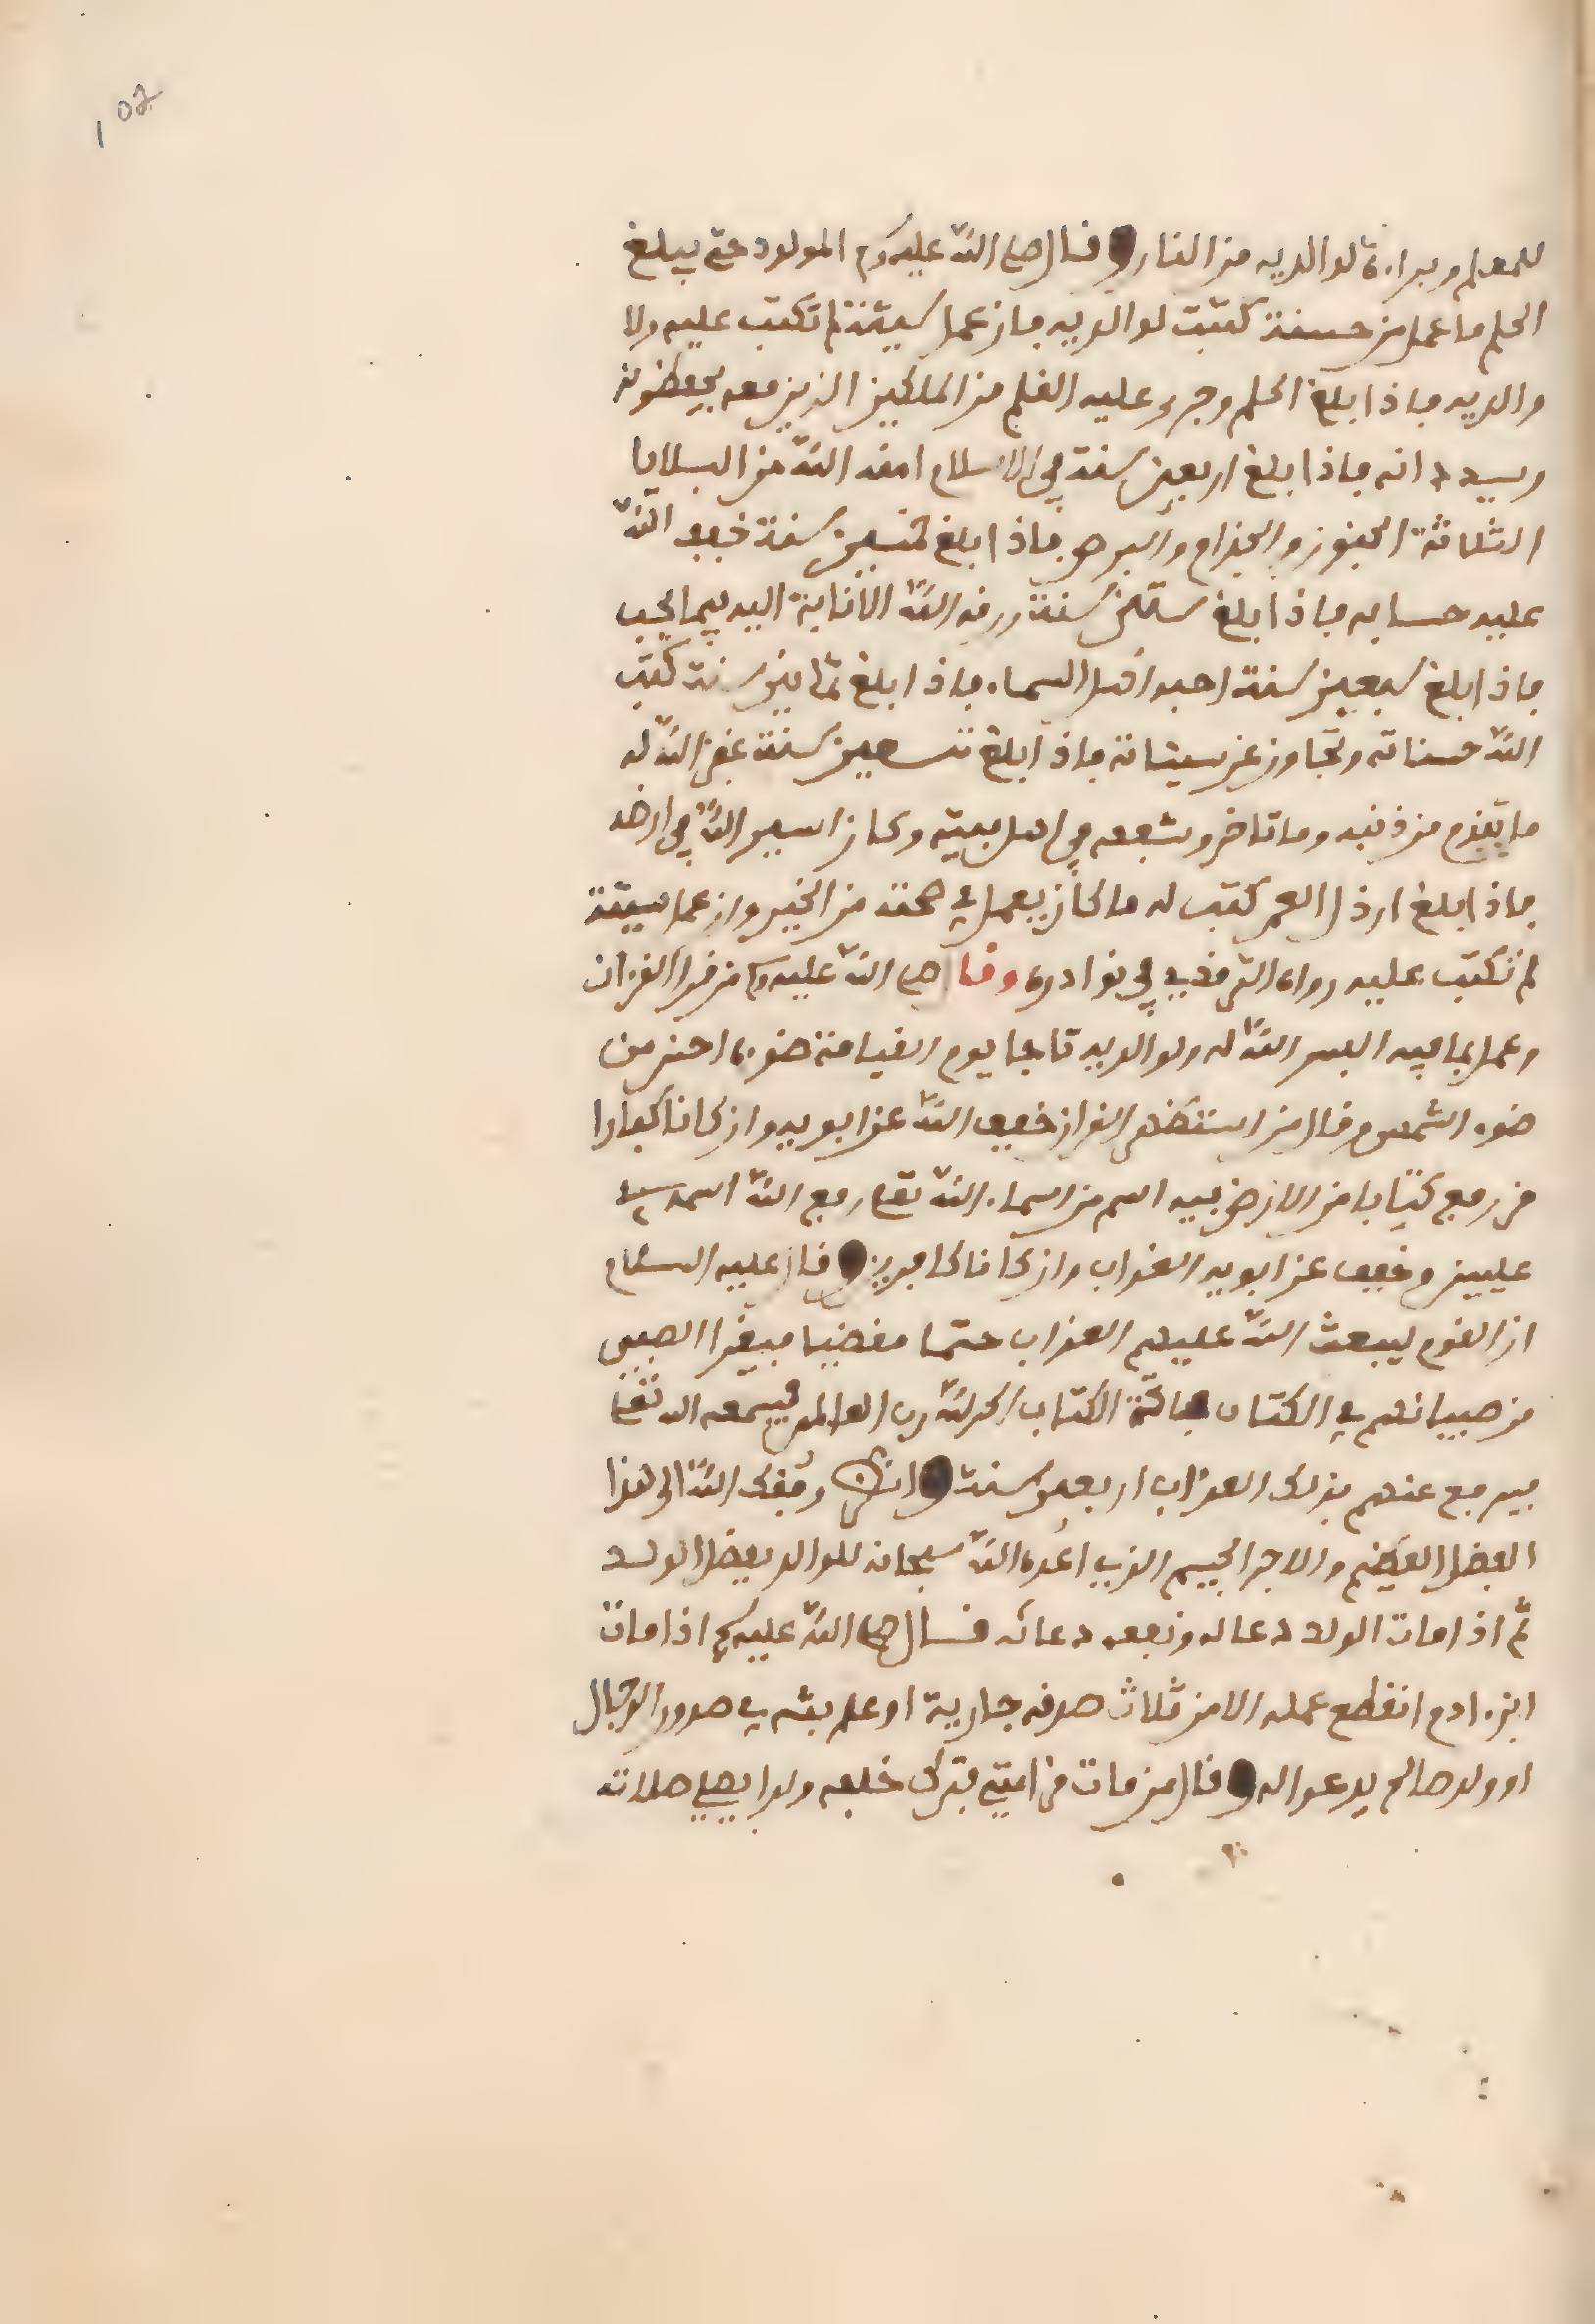 102
للمعلم وبراءة لوالديه من النار وقال صلى الله عليه وسلم المولود حتى يبلغ
الحلم ما عمل من حسنة كتبت لوالديه فان عمل سيئة لم تكتب عليه ولا
والديه فاذا بلغ الحلم وجرى عليه القلم من الملكين الذين معه يحفظونه
ويسددانه فاذا بلغ اربعين سنة في الاسلام امنه الله من البلايا
الثلاثة الجنون والجذام والبرص فاذا بلغ خمسين سنة خفف الله
عليه حسابه فاذا بلغ ستين سنة رزقه الله الانابة اليه فيما يحب
فاذا بلغ سبعين سنة احبه اهل السماء فاذا بلغ ثمانين سنة كتب
الله حسناته وتجاوز عن سيئاته فاذا بلغ تسعين سنة غفر الله له
ما تقدم من ذنبه وما تاخر وشفعه في اهل بيته وكان اسير الله في ارضه
فاذا بلغ ارذل العمر كتب له ما كان يعمل في صحته من الخير وان عمل سيئة
لم تكتب عليه رواه الترمذي في نوادره وقال صلى الله عليه وسلم من قرأ القرءان
وعمل بما فيه البس الله له ولوالديه تاجا يوم القيامة ضوءه احسن من
ضوء الشمس وقال من استظهر القران خفف الله عن ابويه وان كانا كفارا
من رفع كتابا من الارض فيه اسم من اسماء الله تعلى رفع الله اسمه في
عليين وخفف عن ابويه العذاب وان كانا كافرين وقال عليه السلام
ان القوم ليبعث الله عليهم العذاب حتما مقضيا فيقرأ الصبي
من صبيانهم في الكتاب فاتحة الكتاب الحمد لله رب العالمين فيسمعه الله تعلى
فيرفع عنهم بذلك العذاب اربعين سنة وانظر وفقك الله الى هذا
الفضل العظيم والاجر الجسيم الذي اعده الله سبحانه للوالد بفضل الولد
ثم اذا مات الولد دعا له ونفعه دعائه قال صلى الله عليه وسلم اذا مات
ابن ءادم انقطع عمله الا من ثلاث صدقة جارية او علم بثه في صدور الرجال
او ولد صالح يدعوا له وقال من مات من امتي فترك خلفه ولدا يصلي صلاته